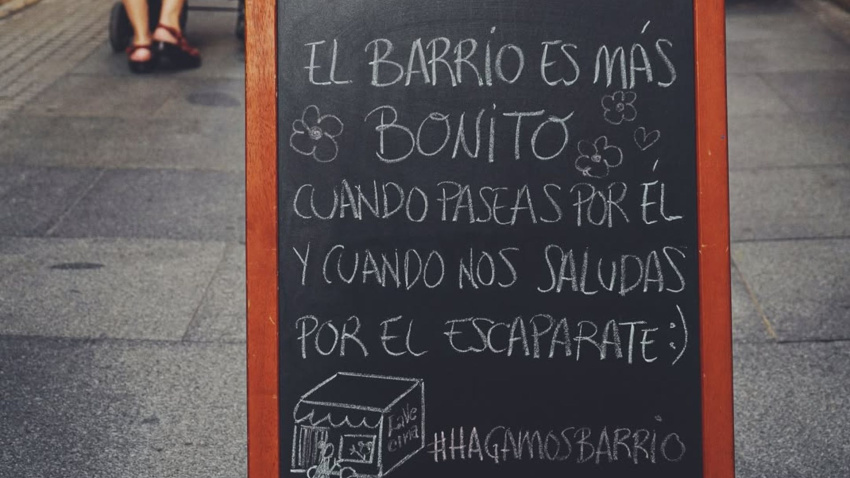 EL BARRIO ES MÁS
BONITO
CUANDO PASEAS POR ÉL
Y CUANDO NOS SALUDAS
POR EL ESCAPARATE :)
LaVe
cina
#HAGAMOSBARRIO